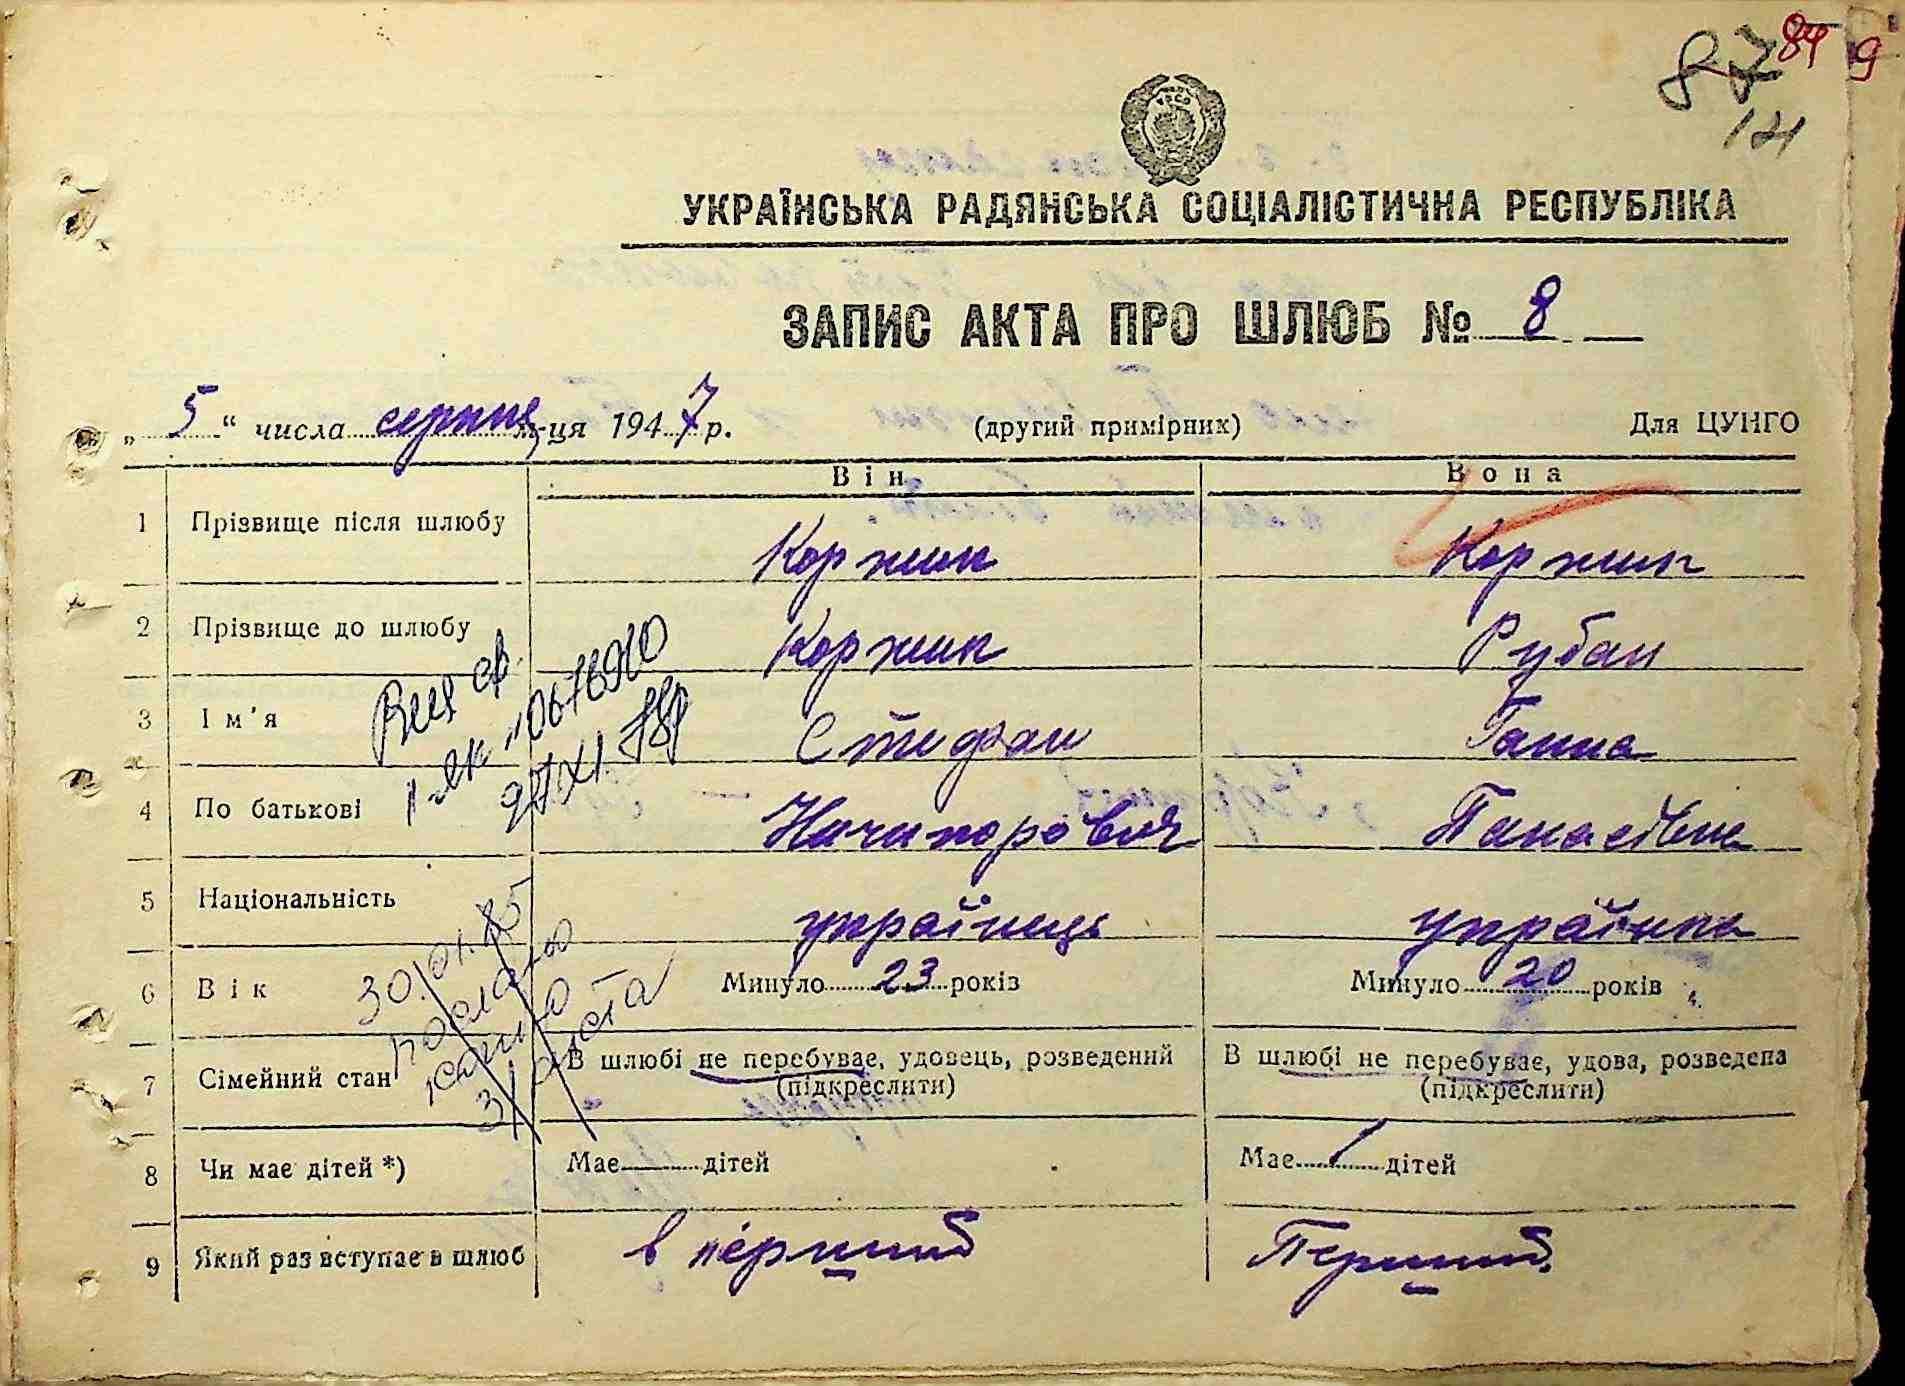 84 9
87
121
УКРАЇНСЬКА РАДЯНСЬКА СОЦІАЛІСТИЧНА РЕСПУБЛІКА
ЗАПИС АКТА ПРО ШЛЮБ № 8
„ 5 “ числа серпня м-ця 1947 р. (другий примірник) Для ЦУНГО
Він Вона
1 Прізвище після шлюбу Коржик Коржик
2 Прізвище до шлюбу Коржик Рубан
3 Ім'я Стефан Ганна
4 По батькові Ничипорович Панасівна
5 Національність українець українка
6 Вік Минуло 23 років Минуло 20 років
7 Сімейний стан В шлюбі не перебуває, удовець, розведений В шлюбі не перебуває, удова, розведена
(підкреслити) (підкреслити)
8 Чи має дітей *) Має дітей Має 1 дітей
9 Який раз вступає в шлюб в перший Перший.
30.01.85
послано
3 листа